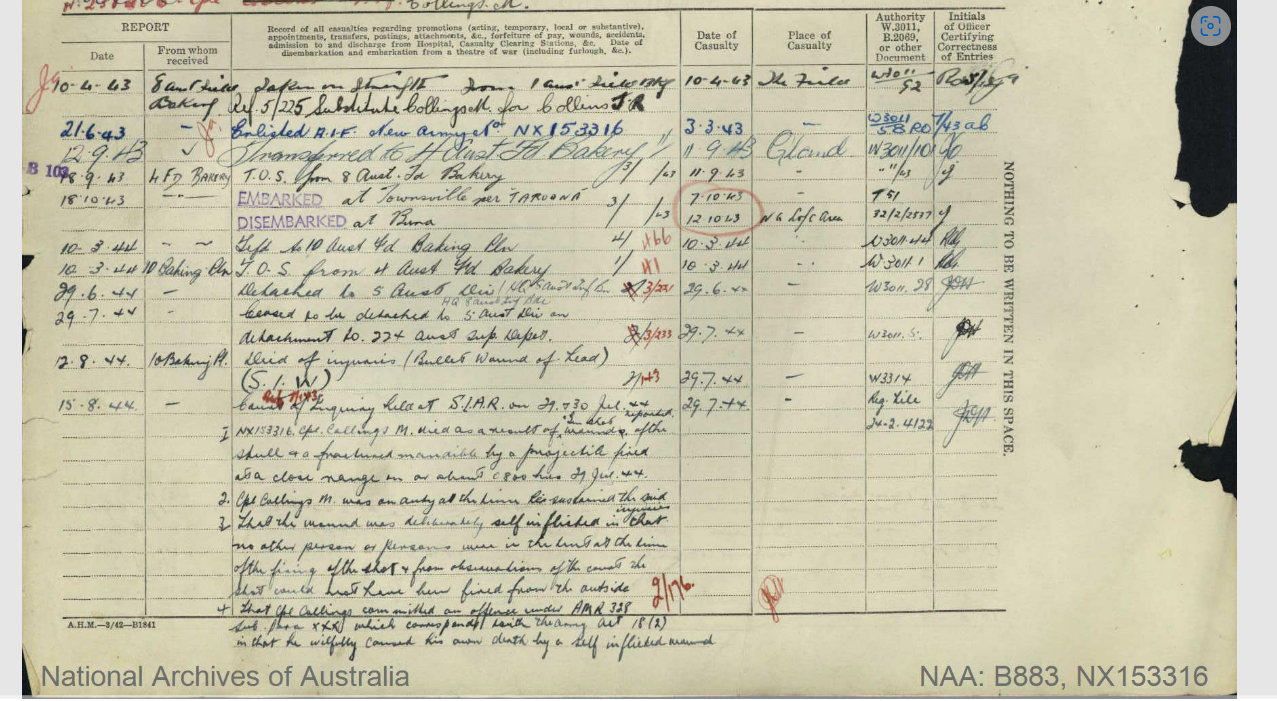 Collings. M.
REPORT
Date
From whom received
Record of all casualties regarding promotions (acting, temporary, local or substantive), appointments, transfers, postings, attachments, &c., forfeiture of pay, wounds, accidents, admission to and discharge from Hospital, Casualty Clearing Stations, &c. Date of disembarkation and embarkation from a theatre of war (including furlough, &c.).
Date of Casualty
Place of Casualty
Authority W.3011, B.2069, or other Document
Initials of Officer Certifying Correctness of Entries
10-4-43 8 Aust Field Taken on Strength from 1 Aust Field Bky 10-4-43 The Field W3011/52
Bakery Ref. 5/225 Substitute Collings M. for Collins J.R
21.6.43 - Enlisted A.I.F. New Army No. NX153316 3.3.43 - W3011
12.9.43 Transferred to 4 Aust Fd Bakery 11 9 43 W3011/101
B 103
18.9.43 4 FD BAKERY T.O.S. from 8 Aust. Fd Bakery 11.9.43 -
18.10.43 EMBARKED at Townsville per TAROONA 7.10.43
DISEMBARKED at Buna 12.10.43 N G LofC Area 32/2/2537
10.3.44 Tsfr to 10 Aust Fd Baking Pln 4/466 10.3.44 W3011.44
10.3.44 10 Baking Pln T.O.S. from 4 Aust Fd Bakery 10.3.44 W.3011.1
29.6.44 - Detached to 5 Aust Div 3/221 29.6.44 W3011.28
HQ 8 Aust Inf Bde
29.7.44 - Ceased to be detached to 5 Aust Div on
detachment to 224 Aust Sup. Depot. 3/233 29.7.44 - W3011.5.
12.8.44. 10 Baking Pl. Died of injuries (Bullet Wound of Head)
(S.I.W) 2/143 29.7.44 - W3314
15.8.44. - Court of Inquiry held at S.I.A.R. on 29.+30 Jul. 44 reported. 29.7.44. - Reg. File
1 NX153316 Cpl Collings M. died as a result of Gun shot wounds of the 24-2.4122
skull & a fractured mandible by a projectile fired
at a close range on or about 0800 hrs 29 Jul. 44.
2. Cpl Collings M. was on duty at the time he sustained the said injuries
3 That the wound was deliberately self inflicted in that
no other person or persons were in the tent at the time
of the firing of the shot & from observations of the court the
shot could not have been fired from the outside 2/176.
4 That Cpl Collings committed an offence under AMR 328
sub. para XXX which corresponds with the Army Act 18(2)
in that he wilfully caused his own death by a self inflicted wound
A.H.M.—3/42—B1841
NOTHING TO BE WRITTEN IN THIS SPACE.
National Archives of Australia
NAA: B883, NX153316